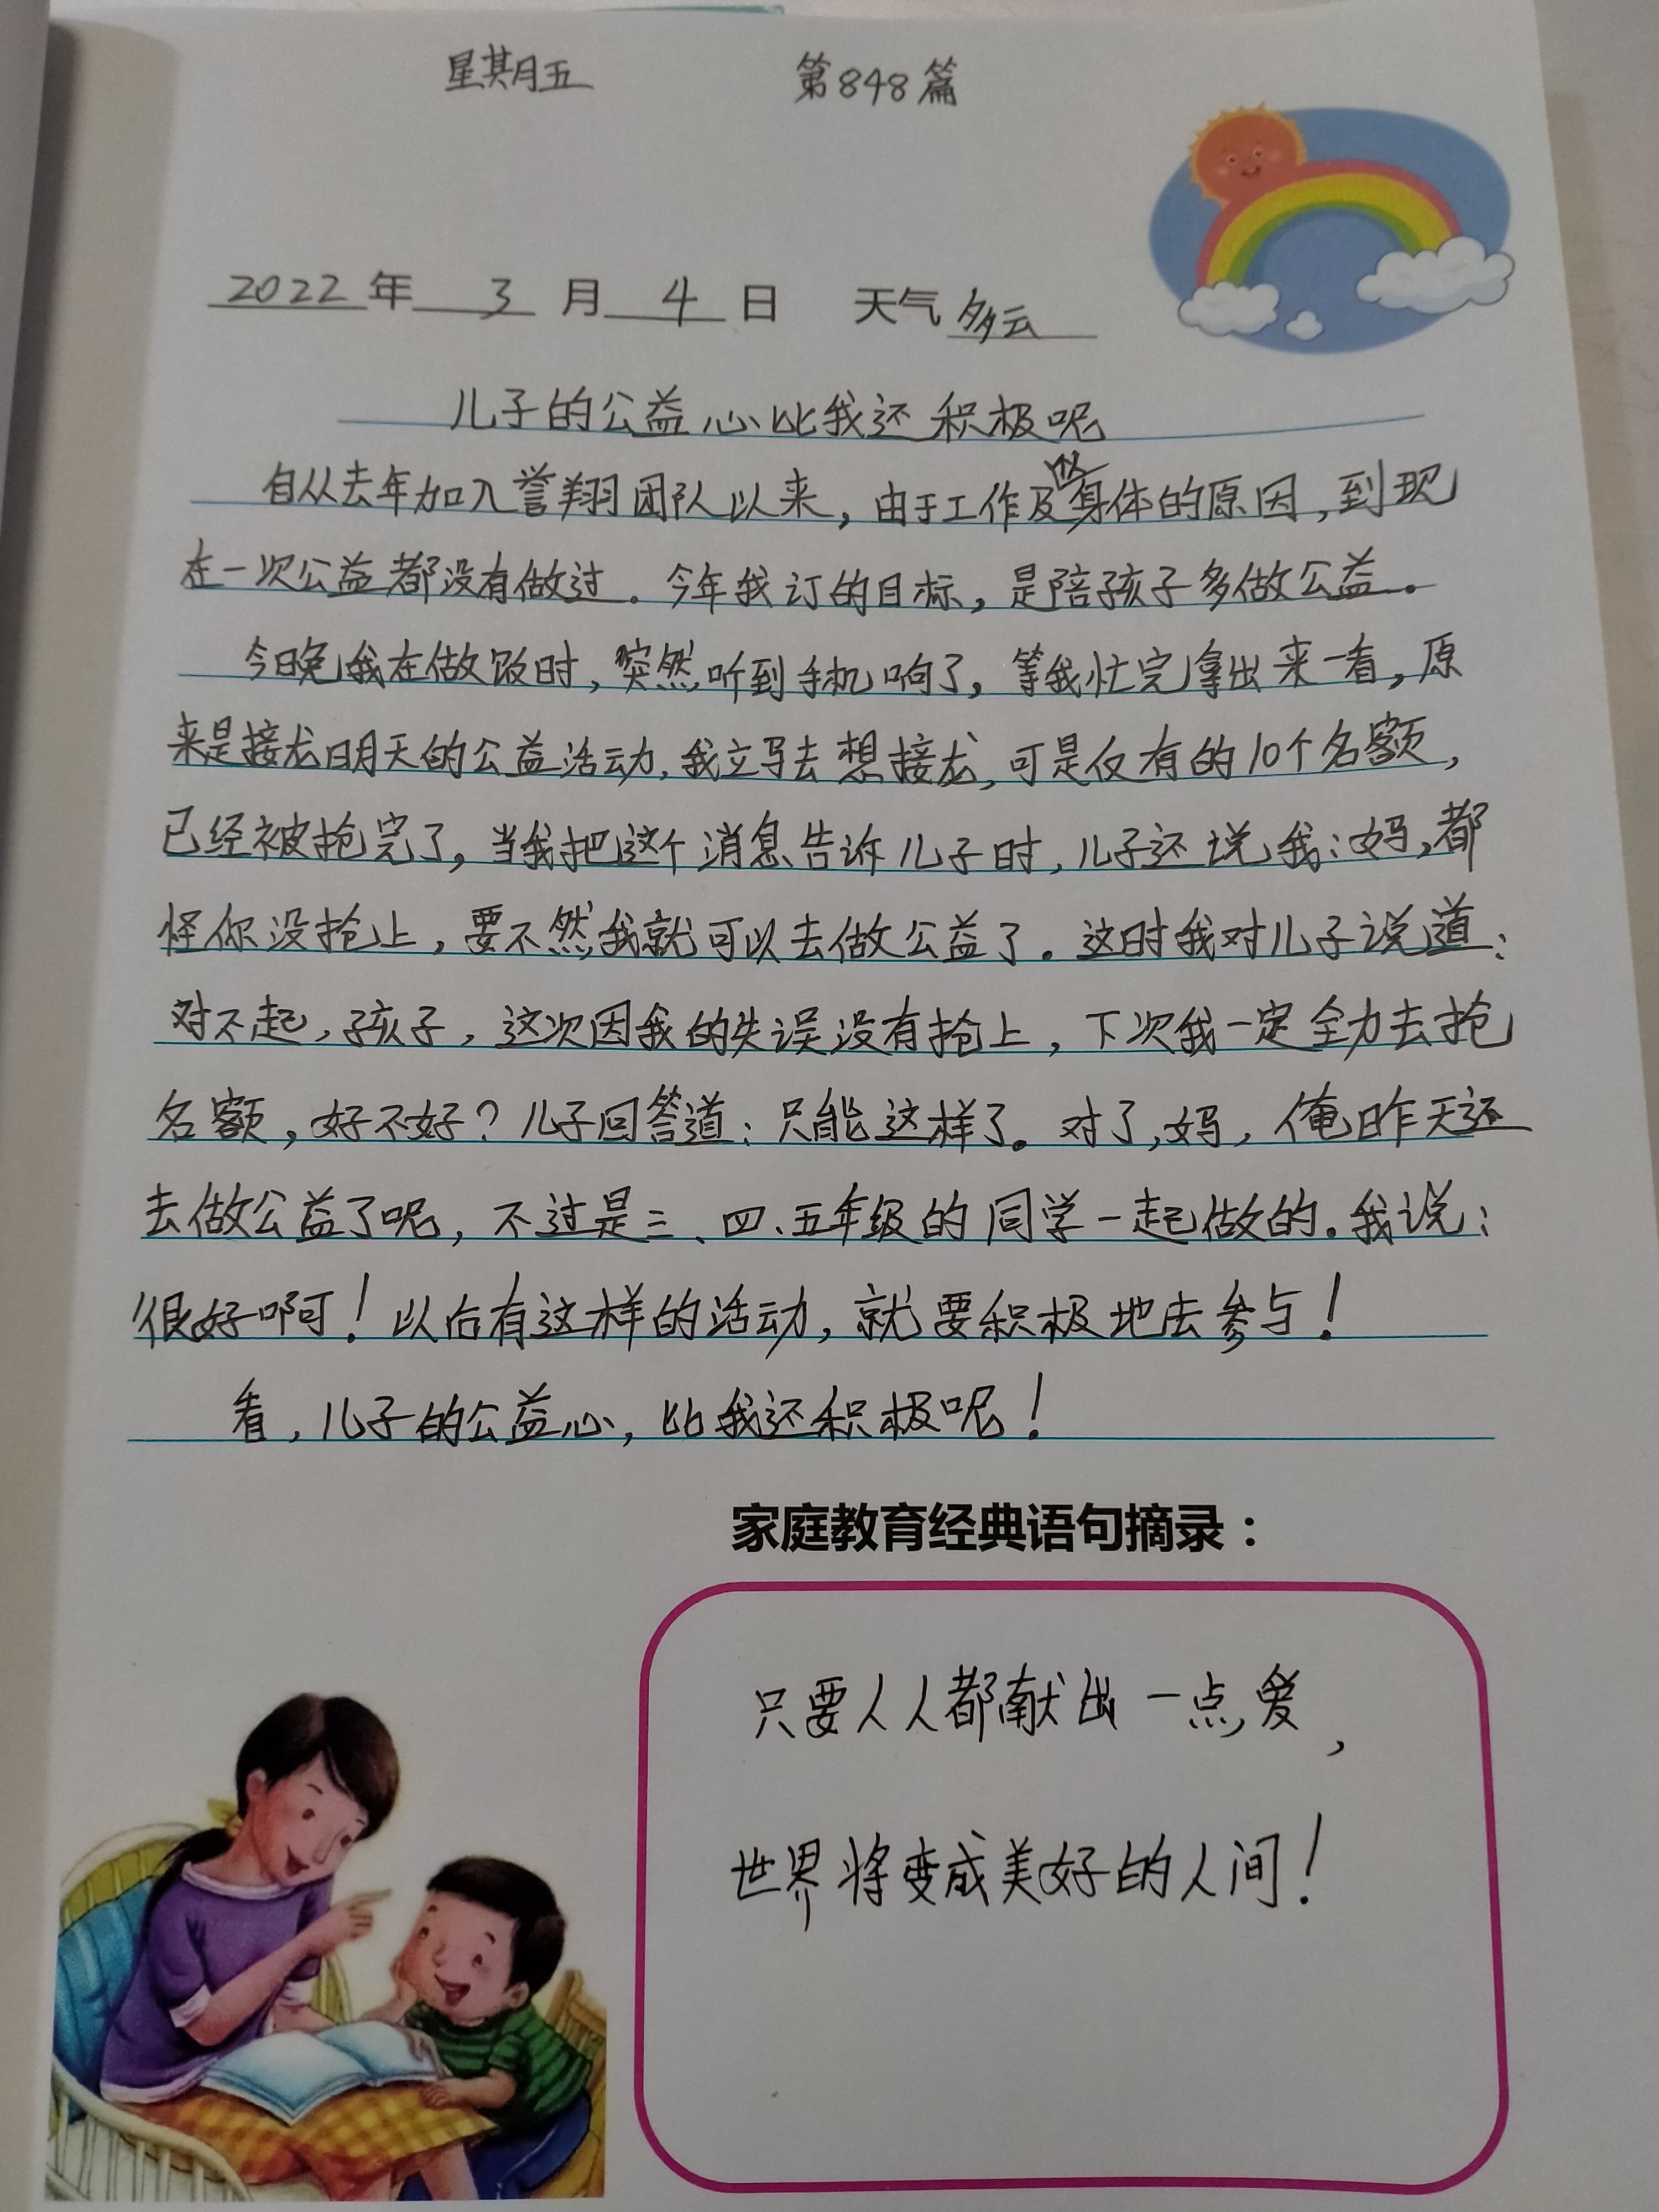 星期五 第848篇
2022年 3 月 4 日 天气 多云
儿子的公益心比我还积极呢
自从去年加入誉翔团队以来，由于工作及身体的原因，到现
在一次公益都没有做过。今年我订的目标，是陪孩子多做公益。
今晚我在做饭时，突然听到手机响了，等我忙完拿出来一看，原
来是接龙明天的公益活动，我立马去想接龙，可是仅有的10个名额，
已经被抢完了，当我把这个消息告诉儿子时，儿子还说我：妈，都
怪你没抢上，要不然我就可以去做公益了。这时我对儿子说道：
对不起，孩子，这次因我的失误没有抢上，下次我一定全力去抢
名额，好不好？儿子回答道：只能这样了。对了，妈，俺昨天还
去做公益了呢，不过是三、四、五年级的同学一起做的。我说：
很好啊！以后有这样的活动，就要积极地去参与！
看，儿子的公益心，比我还积极呢！
家庭教育经典语句摘录：
只要人人都献出一点爱，
世界将变成美好的人间！